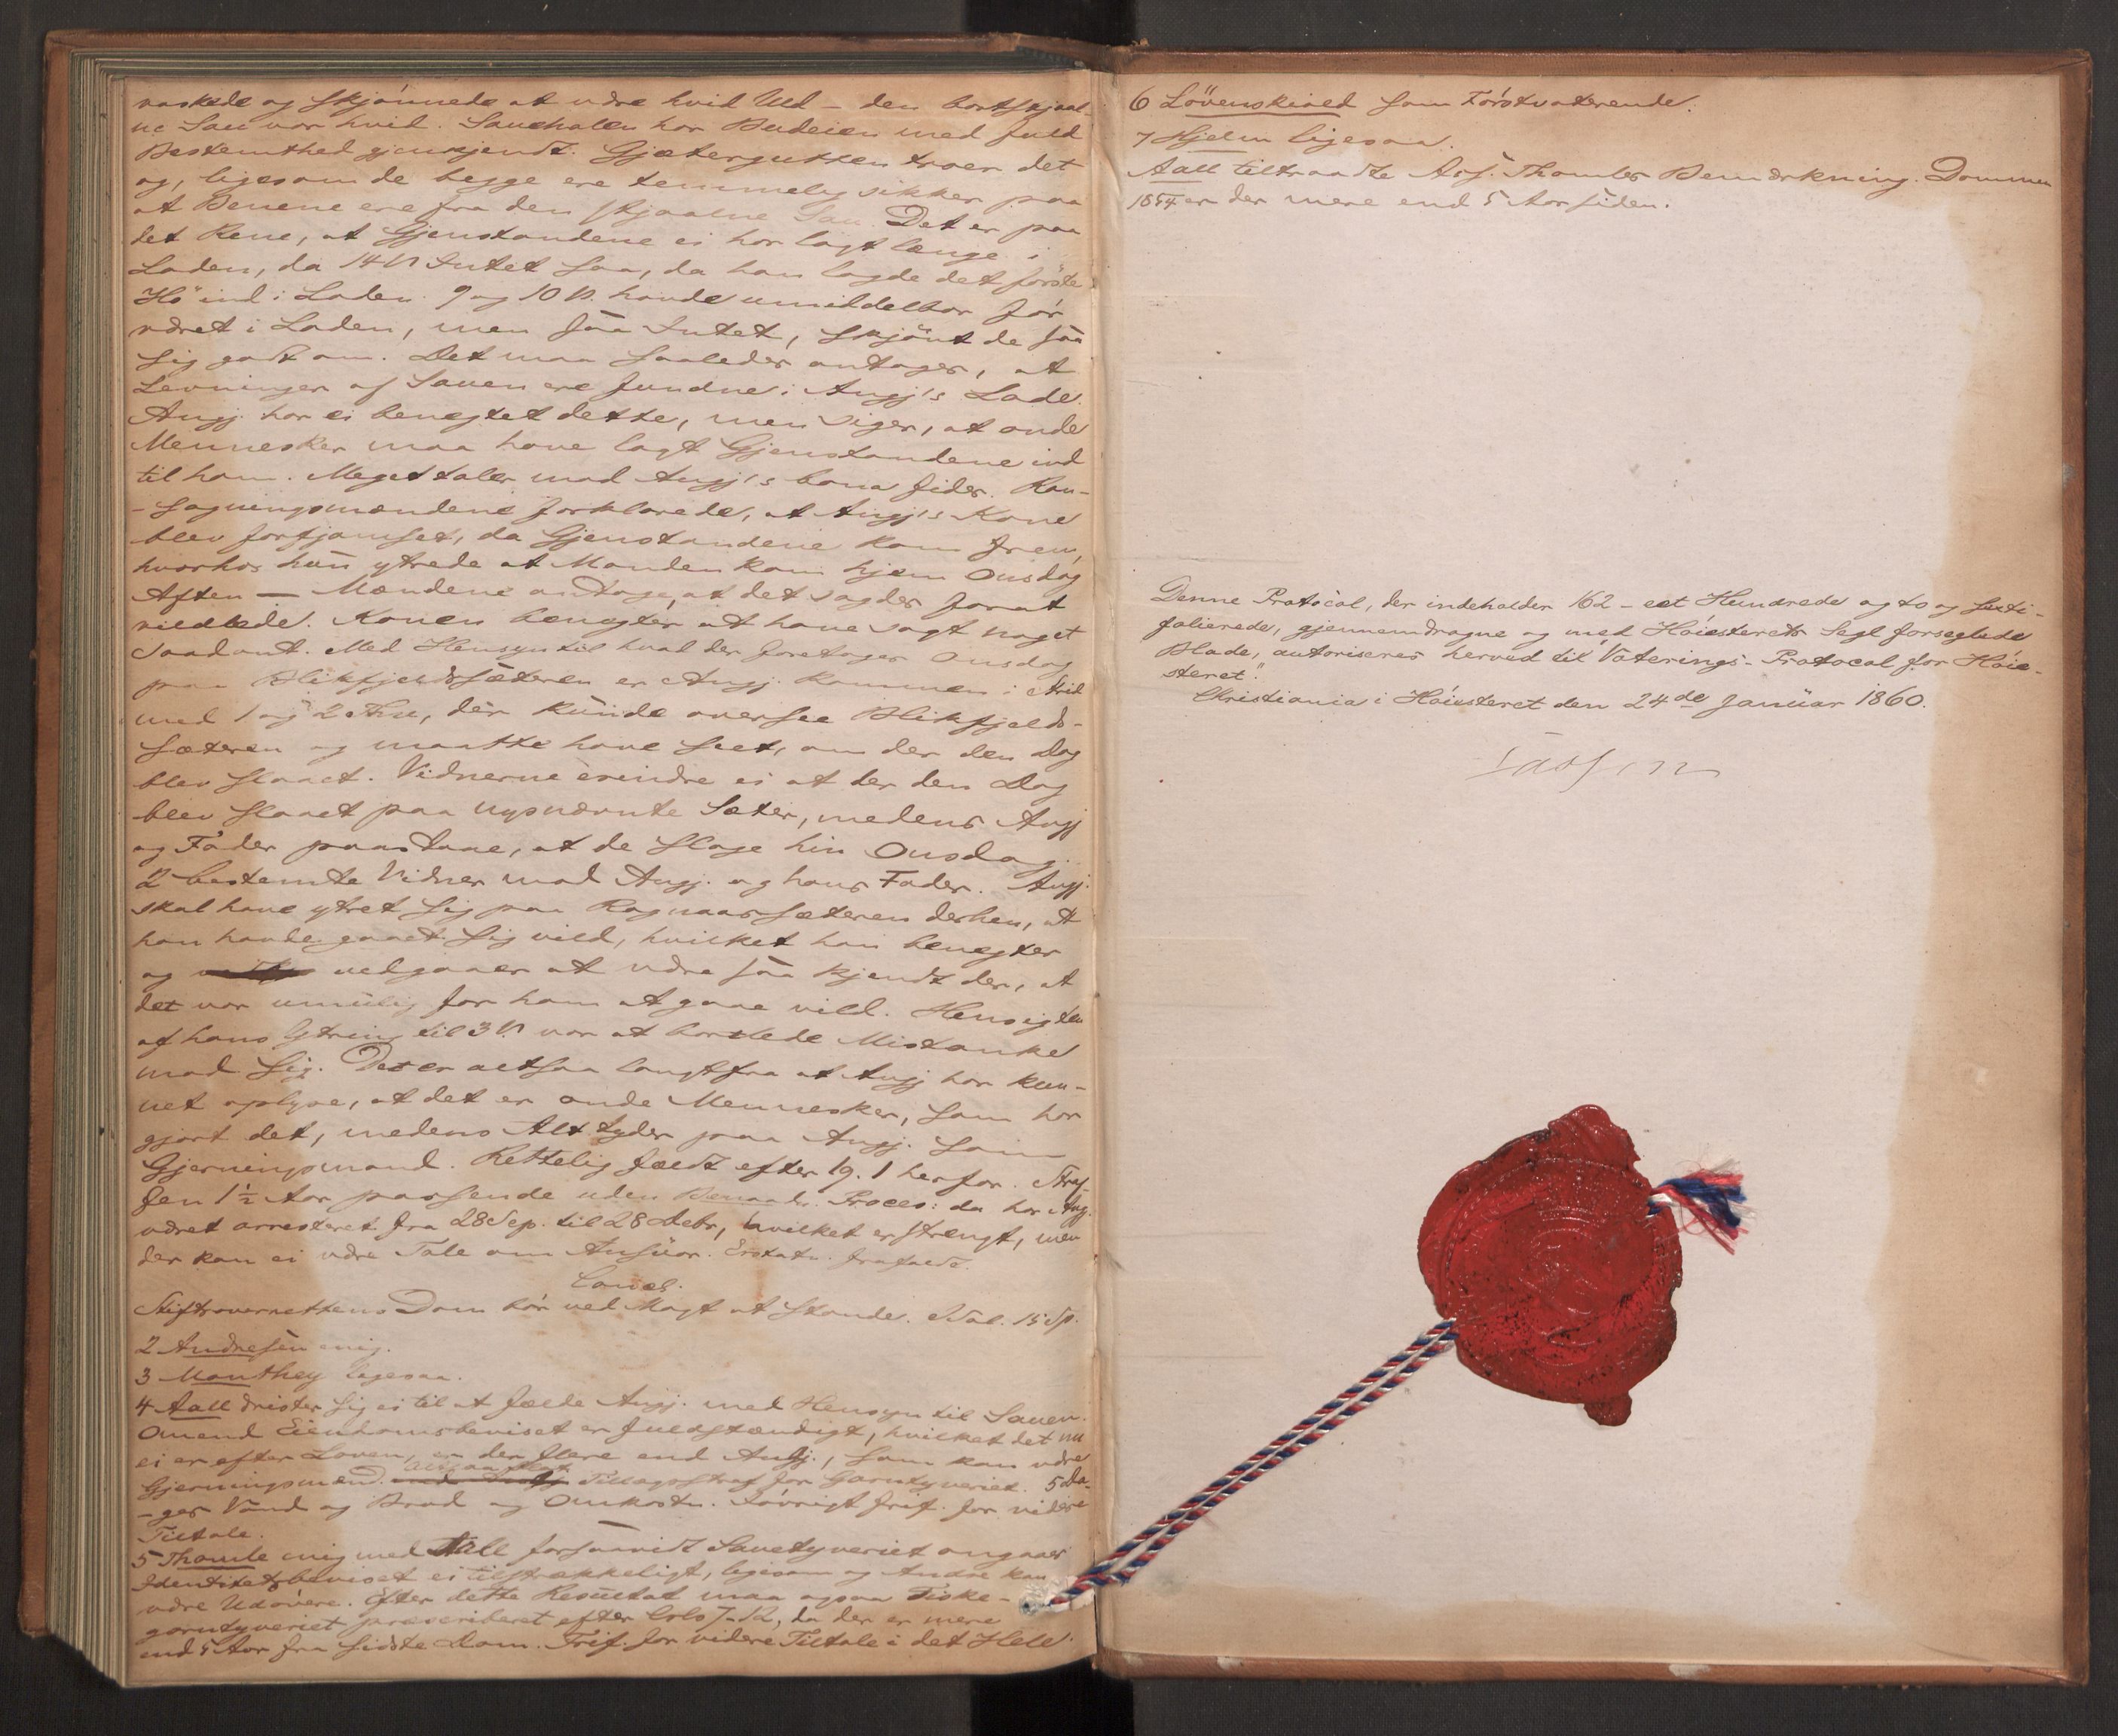 vaskede og skjønnede at være hvid Uld - den bortstjaal-
ne Sau var hvid. Sauehalen har Budeien med fuld
Bestemthed gjenkjendt. Gjætergutten troer det
og, ligesom de begge ere temmelig sikker paa
at Benene ere fra den stjaalne Sau. Det er paa
det Rene, at Gjenstandene ei har lagt længe i
Laden, da 14 V Intet saa, da han lagde det første
Hö ind i Laden. 9 og 10 V. havde umiddelbar før
været i Laden, men saa Intet, skjönt de saa
sig godt om. Det maa saaledes antages, at
Levninger af Sauen ere fundne i Angj's Lade.
Angj. har ei benegtet dette, men siger, at onde
Mennesker maa have lagt Gjenstandene ind
til ham. Meget taler mod Angj's bona fides. Ran-
- sagningsmændene forklarede, at Angj's Kone
blev forfjamset, da Gjenstandene kom frem,
hvorhos hun ytrede at Manden kom hjem Onsdag
Aften — Mændene antage, at det sagdes for at
vildlede. Konen benegter at have sagt noget
Saadant. Med Hensyn til hvad der foretoges Onsdag
paa Blikfjeldsæteren er Angj. kommen i Strid
med 1 og 2 Thn, der kunde oversee Blikfjelds-
sæteren og maatte have seet, om der den Dag
blev slaaet. Vidnerne erindre ei at der den Dag
blev slaaet paa nysnævnte Sæter, medens Angj
og Fader paastaae, at de sloge hin Onsdag.
2 bestemte Vidner mod Angj. og hans Fader. Angj.
skal have ytret sig paa Ragnaassæteren derhen, at
han havde gaaet sig vild, hvilket han benegter
og vedgaaer at være saa kjendt der, at
det var umulig for ham at gaae vild. Hensigten
af hans Ytring til 3 V. var at bortlede Mistanke
mod sig. Det er altsaa langt fra at Angj har kun-
net oplyse, at det er onde Mennesker, som har
gjort det, medens Alt tyder paa Angj. som
Gjerningsmand. Rettelig fældt efter 19. 1 herfor. Straf-
fen 1½ Aar passende uden Benaadn. Proces: da har Angj.
været arresteret fra 28 Sep. til 28 Debr, hvilket er strengt, men
der kan ei være Tale om Ansvar. Erstatn. frafaldt.
Concl.
Stiftsoverrettens Dom bör ved Magt at stande. Sal. 15 Sp.
2 Andresen enig.
3 Manthey ligesaa.
4 Aall drister sig ei til at fælde Angj. med Hensyn til Sauen.
Omend Eiendomsbeviset er fuldstændigt, hvilket det nu
ei er efter Loven, er der flere end Angj., som kan være
Gjerningsmænd. Altsaa Tillægsstraf for Garntyveriet. 5 Da-
- ges Vand og Brød og Omkostn. Iövrigt frif. for videre
Tiltale.
5 Thomle enig med Aall forsaavidt Sauetyveriet angaaer
Identitetsbeviset ei tilstrækkeligt, ligesom og Andre kan
være Udövere. Efter dette Resultat maa ogsaa Fiske-
garntyveriet præscriberet efter Crls 7-12, da der er mere
end 5 Aar fra sidste Dom. Frif. for videre Tiltale i det Hele.
6 Lövenskiold som Förstvoterende.
7 Hjelm ligesaa.
Aall tiltraadte Ass. Thomles Bemærkning. Dommen
1854 er der mere end 5 Aar siden.
Denne Protocol, der indeholder 162 - eet Hundrede og to og sexti -
folierede, gjennemdragne og med Höiesterets Segl forseglede
Blade, autoriseres herved til Voterings-Protocol for Höie-
steret.
Christiania i Höiesteret den 24de Januar 1860.